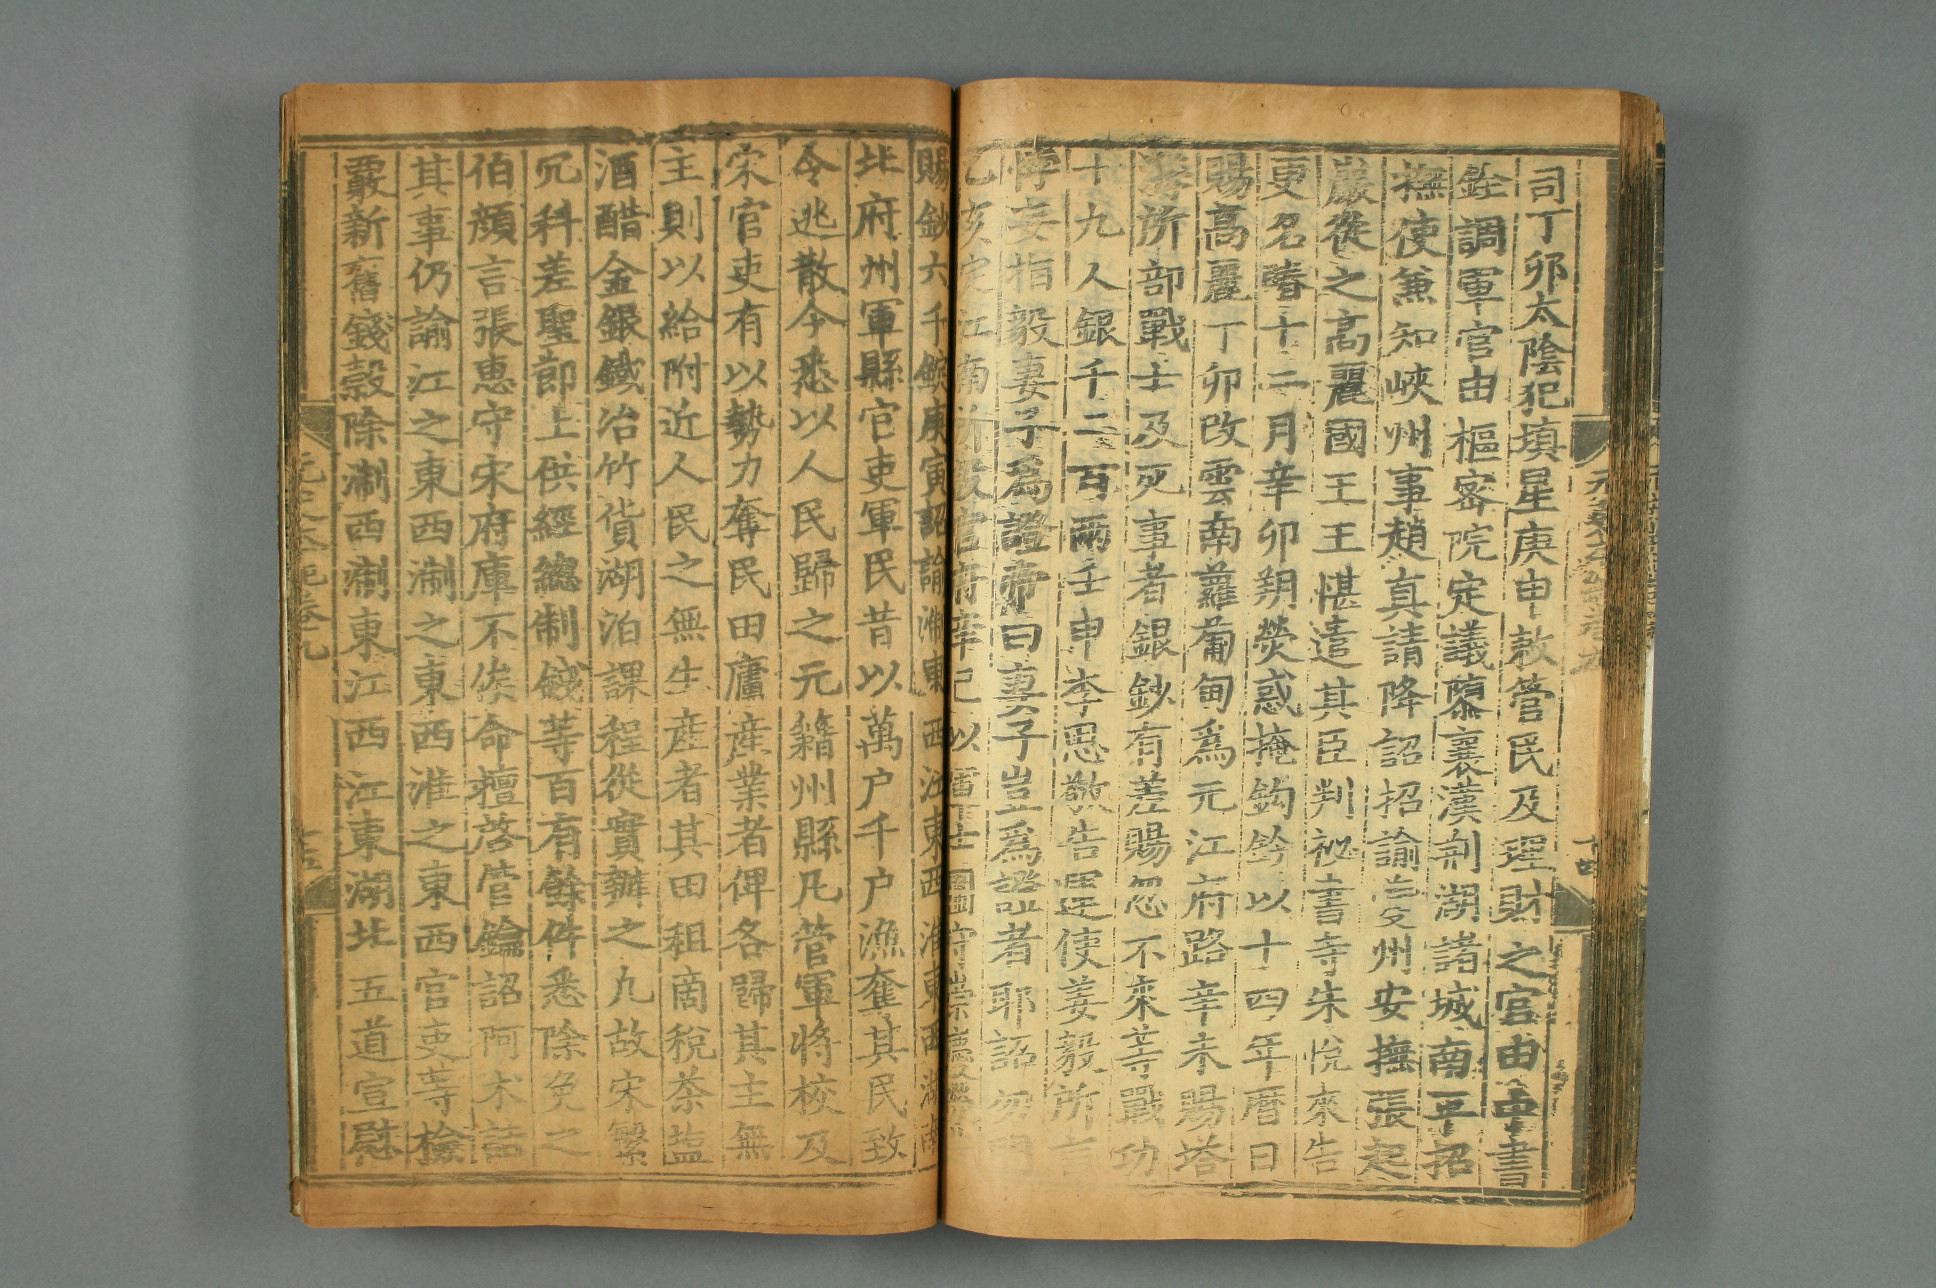 司丁卯太陰犯填星庚申敕管民及理財之官由中書
銓調軍官由樞密院定議隳襄漢荆湖諸城南平招
撫使兼知峽州事趙真請降詔招諭夔州安撫張起
巖從之高麗國王王愖遣其臣判祕書寺朱悦來告
更名賰十二月辛卯朔熒惑掩鈎鈐以十四年曆日
賜高麗丁卯改雲南蘿葡甸爲元江府路辛未賜塔
海所部戰士及死事者銀鈔有差賜忽不來等戰功
十九人銀千二百兩壬申李思敬告運使姜毅所言
悖妄指毅妻子爲證帝曰妻子豈爲證者耶詔勿問
乙亥定江南所設官府辛巳以
賜鈔六千錠庚寅詔諭淛東西江東西淮東西湖南
北府州軍縣官吏軍民昔以萬户千户漁奪其民致
令逃散今悉以人民歸之元籍州縣凡管軍將校及
宋官吏有以勢力奪民田廬産業者俾各歸其主無
主則以給附近人民之無生産者其田租商稅茶鹽
酒醋金銀鐵冶竹貨湖泊課程從實辦之凡故宋繁
冗科差聖節上供經總制錢等百有餘件悉除免之
伯顔言張惠守宋府庫不俟命擅啓管鑰詔阿术詰
其事仍諭江之東西淛之東西淮之東西官吏等檢
覈新舊錢穀除淛西淛東江西江東湖北五道宣慰